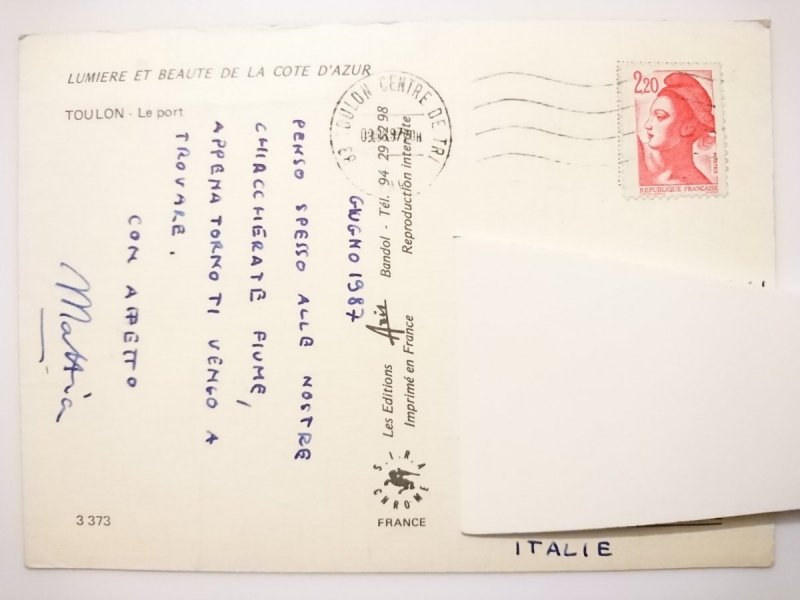 LUMIERE ET BEAUTE DE LA COTE D'AZUR
TOULON - Le port
GIUGNO 1987
PENSO SPESSO ALLE NOSTRE
CHIACCHIERATE FIUME,
APPENA TORNO TI VENGO A
TROVARE.
CON AFFETTO
Mattia
3 373
Les Editions Azis Bandol - Tél. 94 29 52 98
Imprimé en France Reproduction interdite
S.I.R.A
CHROME
FRANCE
83 TOULON CENTRE DE TRI
2,20
REPUBLIQUE FRANÇAISE
ITALIE